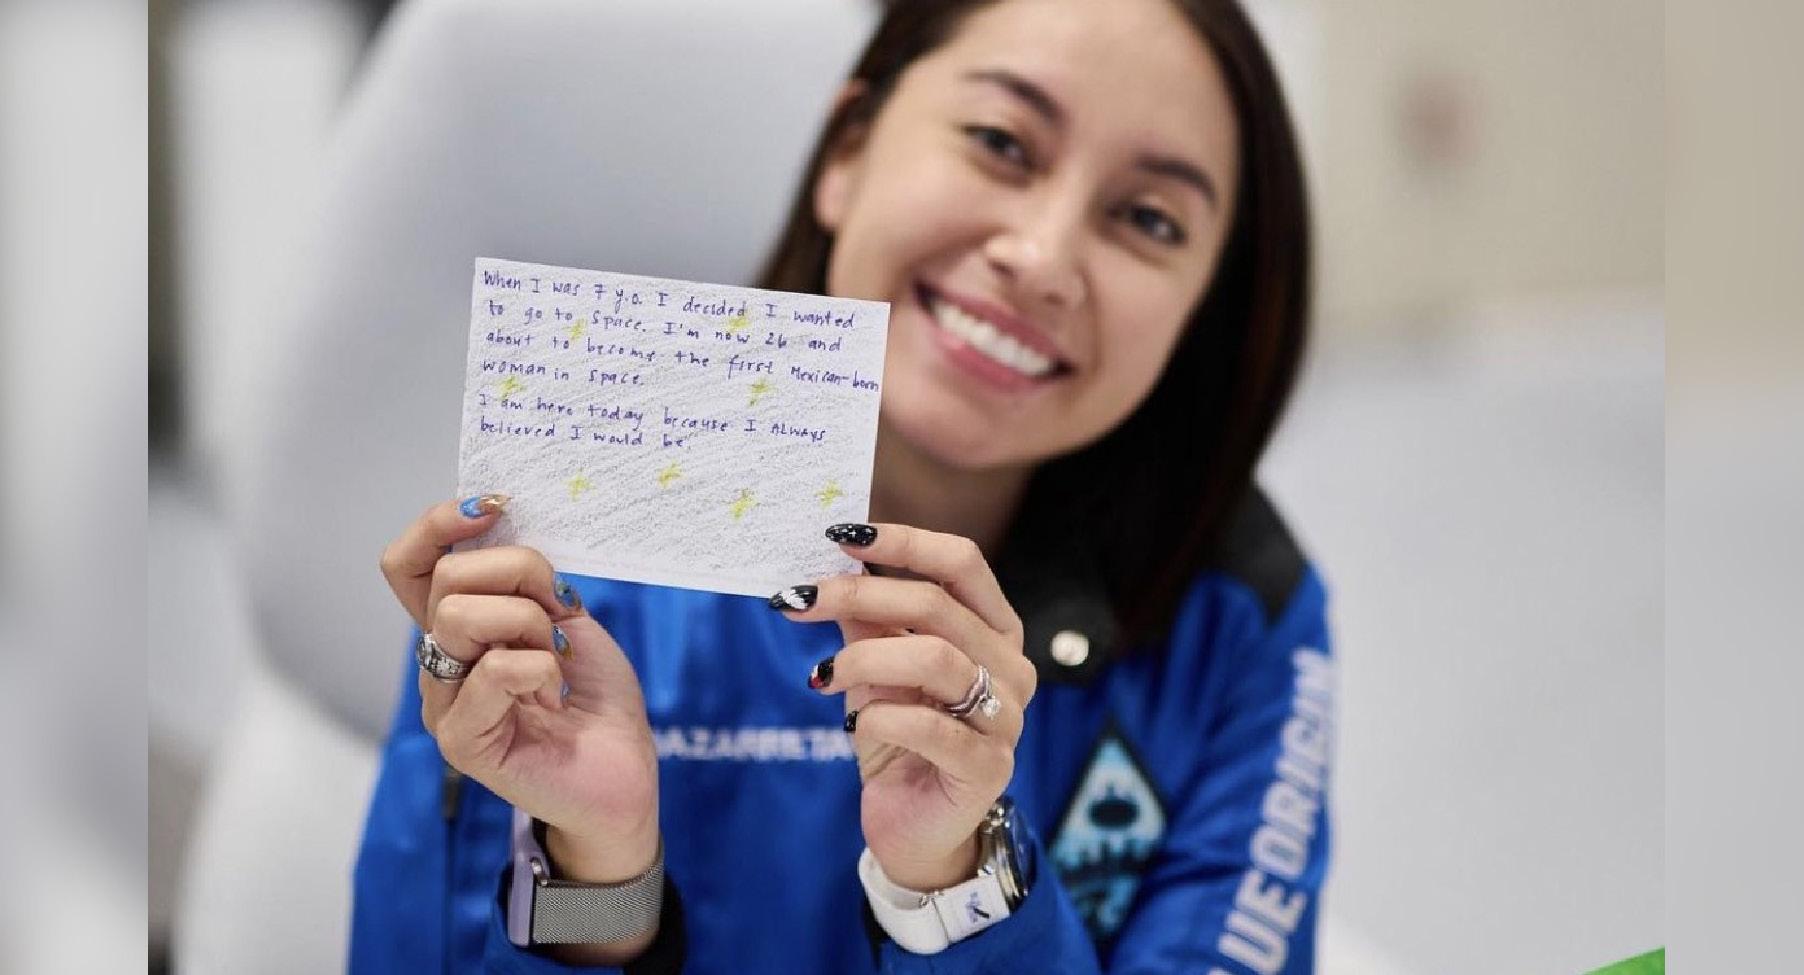 When I was 7 y.o. I decided I wanted
to go to space. I'm now 26 and
about to become the first Mexican-born
woman in space.
I am here today because I ALWAYS
believed I would be.
BLUE ORIGIN